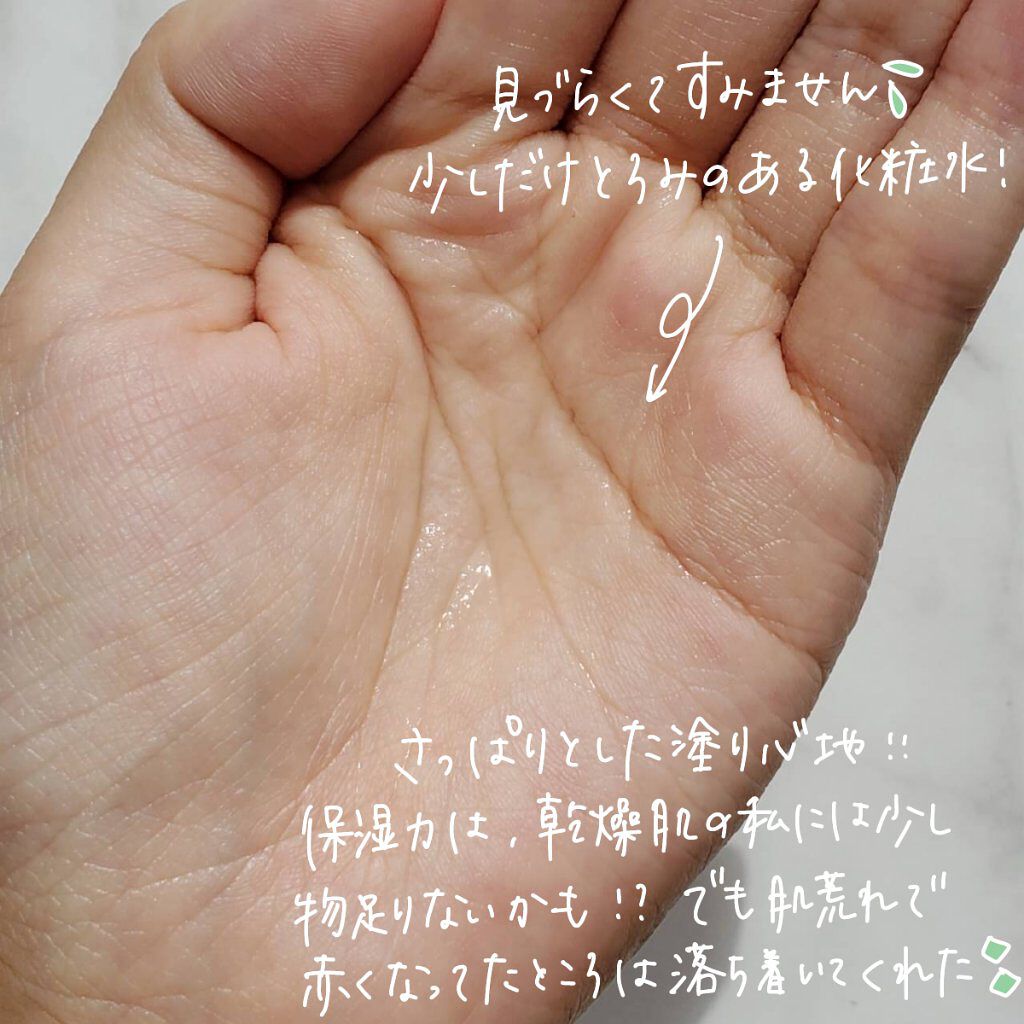 見づらくてすみません
少しだけとろみのある化粧水!
さっぱりとした塗り心地!!
保湿力は、乾燥肌の私には少し
物足りないかも!?でも肌荒れで
赤くなってたところは落ち着いてくれた